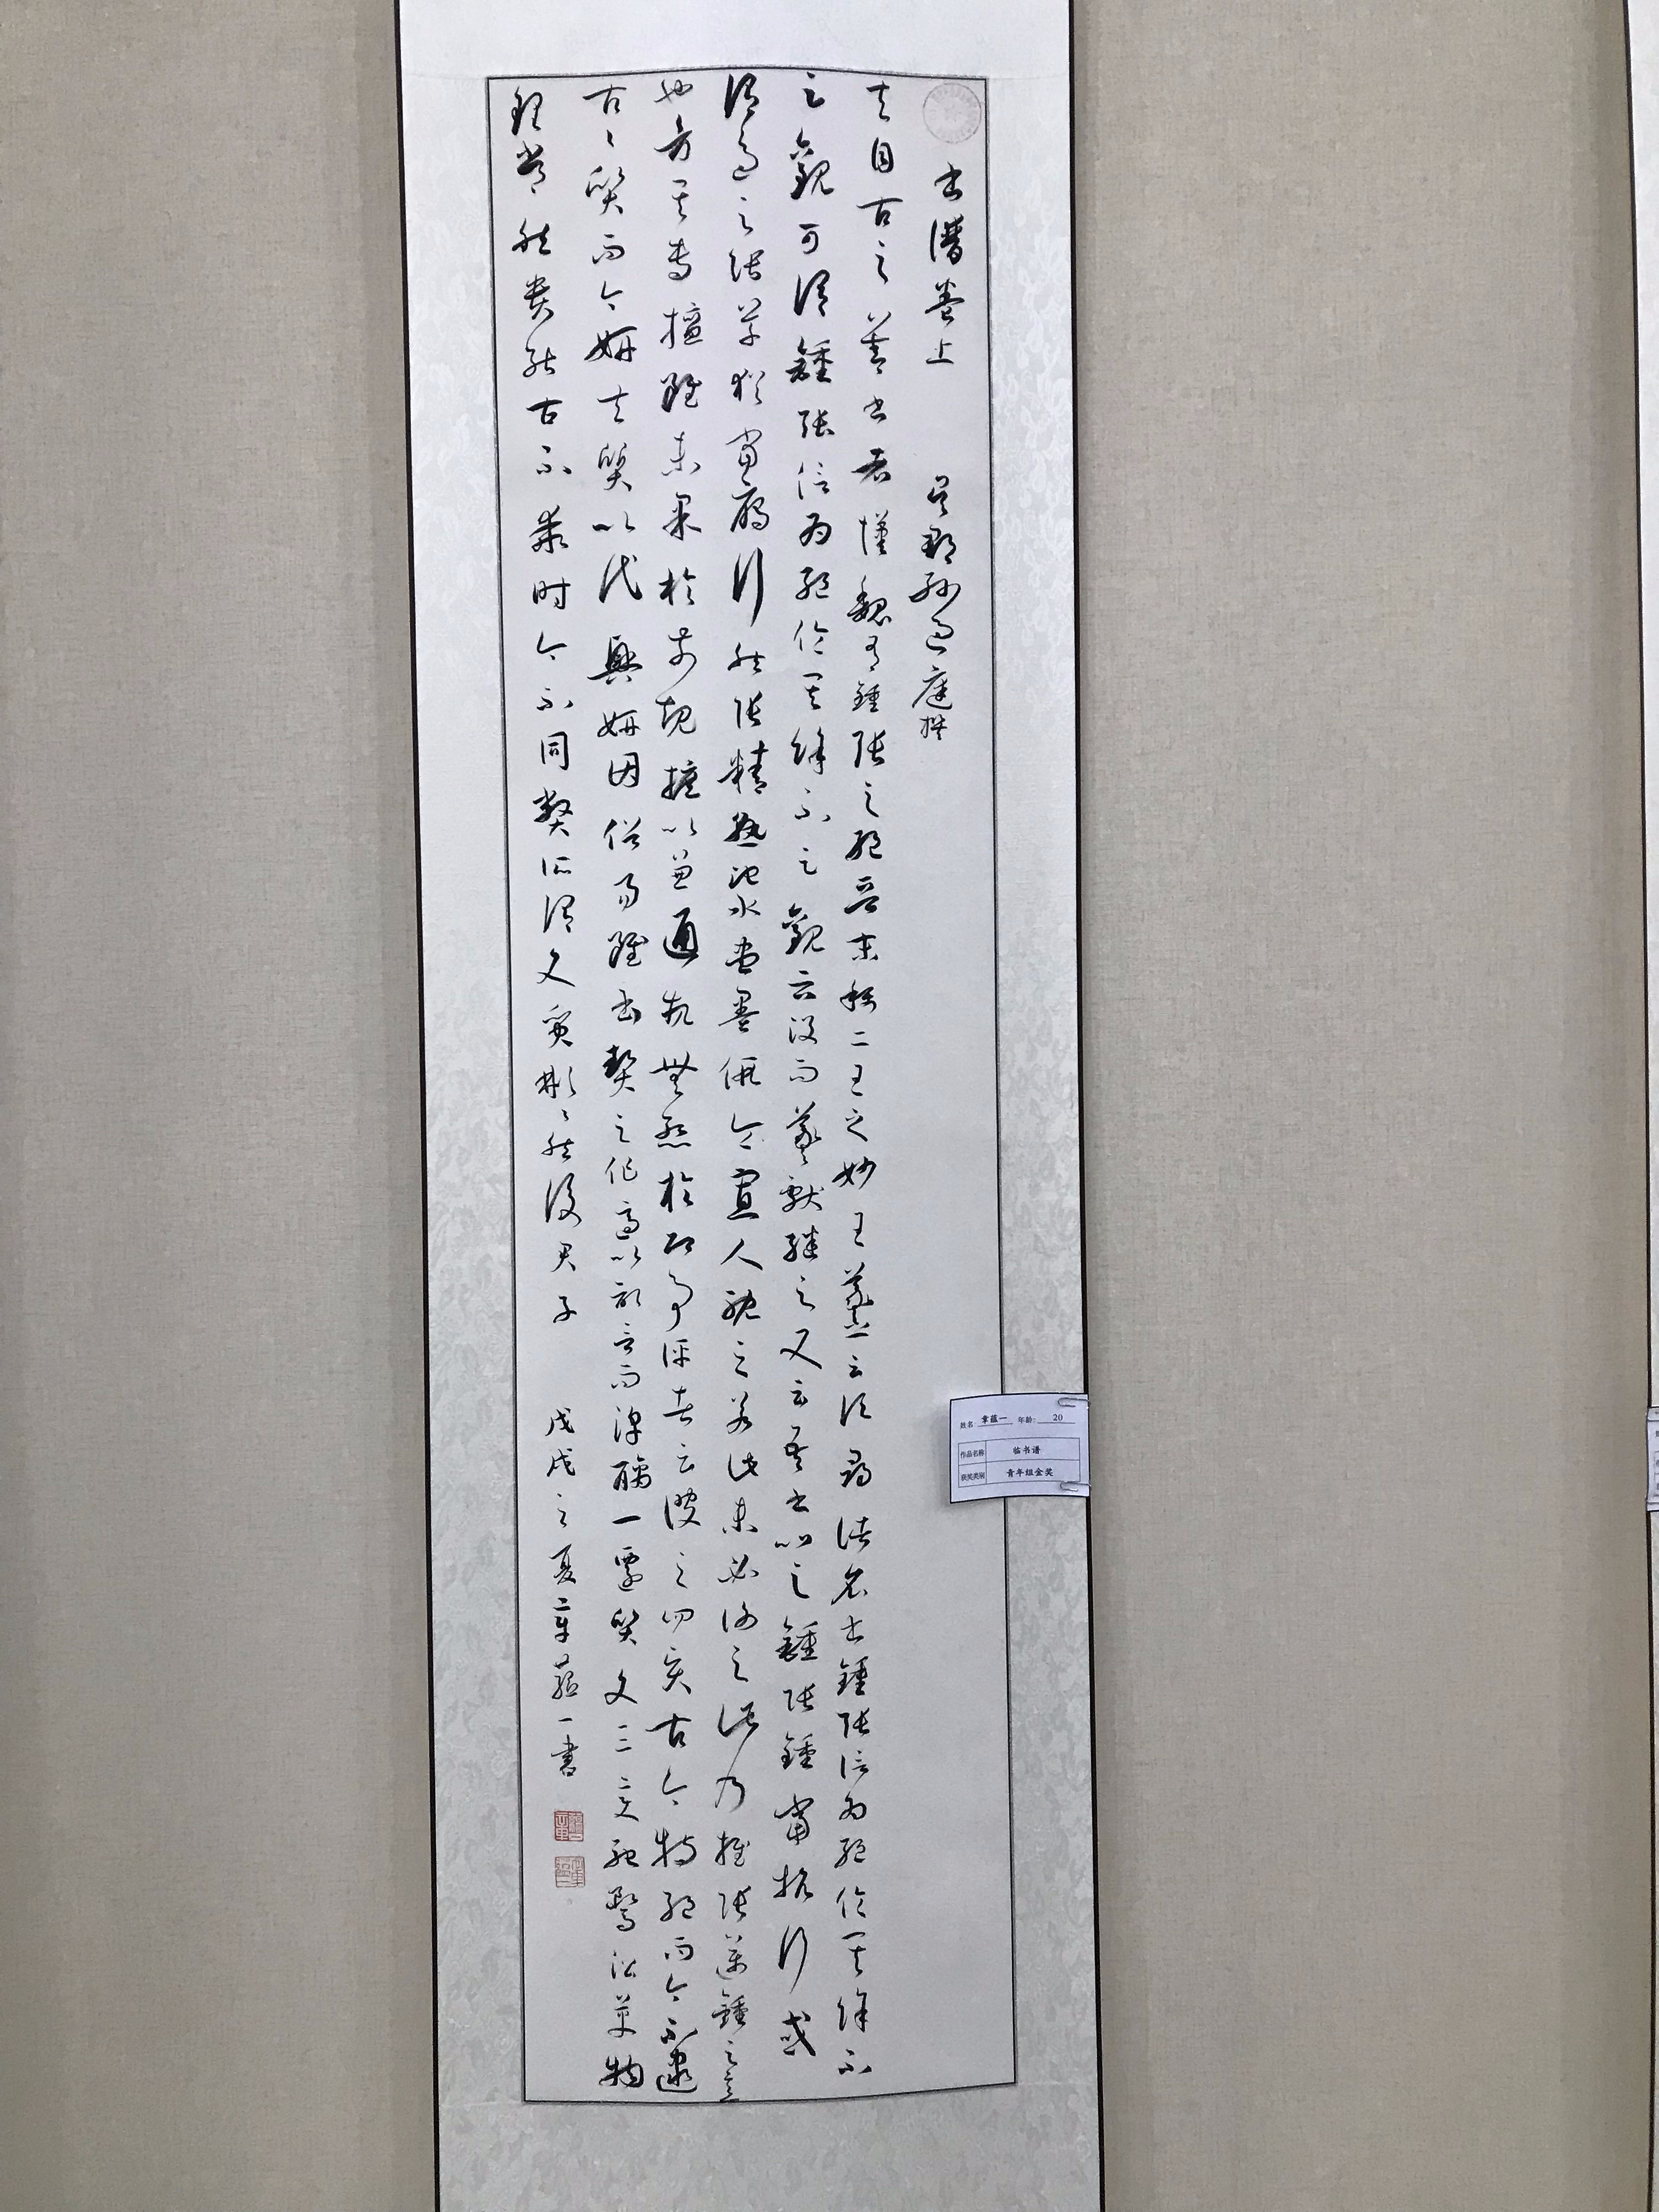 書譜卷上 吳郡孫過庭撰
夫自古之善書者漢魏有鍾張之絕晉末稱二王之妙王羲之云頃尋諸名書鍾張信為絕倫其餘不
足觀可謂鍾張信為絕倫其餘不足觀云沒而羲獻繼之又云吾書比之鍾張鍾當抗行或
謂過之張草猶當雁行然張精熟池水盡墨假令寡人耽之若此未必謝之此乃推張邁鍾之意
也考其專擅雖未果於前規摭以兼通故無慚於即事評者云彼之四賢古今特絕而今不逮
古々質而今妍夫質以代興妍因俗易雖書契之作適以記言而淳醨一遷質文三變馳騖沿革物
理常然貴能古不乖時今不同弊所謂文質彬々然後君子 戊戌之夏章蘊一書
姓名 章蕴一 年龄: 20
作品名称 临书谱
获奖类别 青年组金奖